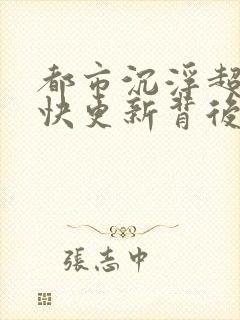 都市沉浮超
快更新背後
張志中